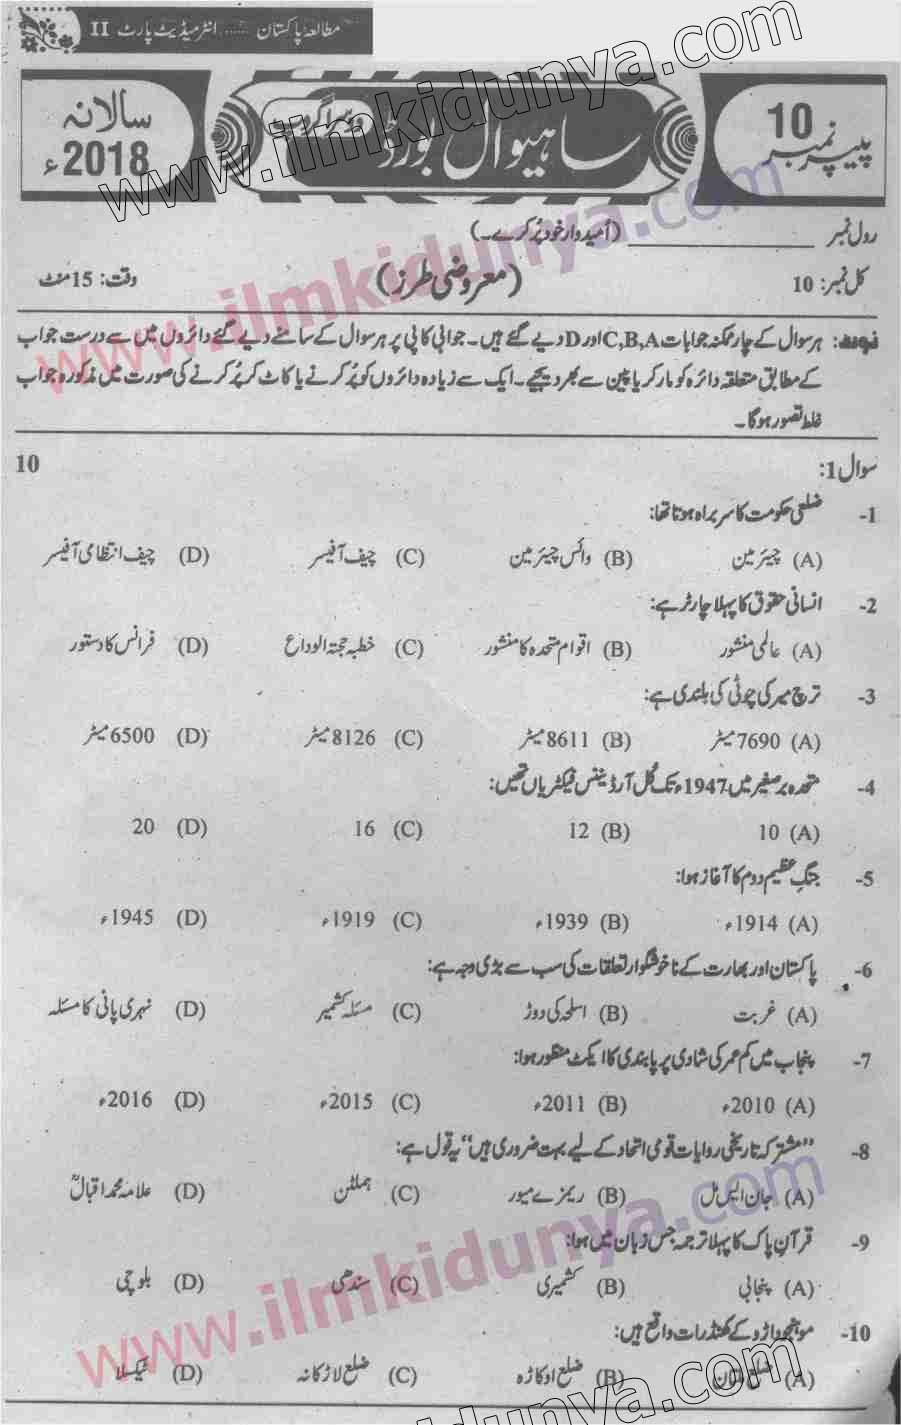 مطالعۂ پاکستان ...... انٹرمیڈیٹ پارٹ II
پیپر نمبر 10
ساہیوال بورڈ
دوسرا گروپ
سالانہ 2018ء
رول نمبر ____________ (اُمیدوار خود پُر کرے۔)
کل نمبر: 10 (معروضی طرز) وقت: 15 منٹ
نوٹ: ہر سوال کے چار ممکنہ جوابات C,B,A اور D دیے گئے ہیں۔ جوابی کاپی پر ہر سوال کے سامنے دیے گئے دائروں میں سے درست جواب
کے مطابق متعلقہ دائرہ کو مارکر یا پین سے بھر دیجیے۔ ایک سے زیادہ دائروں کو پُر کرنے یا کاٹ کر پُر کرنے کی صورت میں مذکورہ جواب
غلط تصور ہوگا۔
سوال 1: 10
-1 ضلعی حکومت کا سربراہ ہوتا تھا:
(A) چیئرمین (B) وائس چیئرمین (C) چیف آفیسر (D) چیف انتظامی آفیسر
-2 انسانی حقوق کا پہلا چارٹر ہے:
(A) عالمی منشور (B) اقوام متحدہ کا منشور (C) خطبہ حجۃ الوداع (D) فرانس کا دستور
-3 ترچ میر کی چوٹی کی بلندی ہے:
(A) 7690 میٹر (B) 8611 میٹر (C) 8126 میٹر (D) 6500 میٹر
-4 متحدہ برصغیر میں 1947ء تک کُل آرڈیننس فیکٹریاں تھیں:
(A) 10 (B) 12 (C) 16 (D) 20
-5 جنگِ عظیم دوم کا آغاز ہوا:
(A) 1914ء (B) 1939ء (C) 1919ء (D) 1945ء
-6 پاکستان اور بھارت کے ناخوشگوار تعلقات کی سب سے بڑی وجہ ہے:
(A) غربت (B) اسلحہ کی دوڑ (C) مسئلہ کشمیر (D) نہری پانی کا مسئلہ
-7 پنجاب میں کم عمر کی شادی پر پابندی کا ایکٹ منظور ہوا:
(A) 2010ء (B) 2011ء (C) 2015ء (D) 2016ء
-8 ”مشترکہ تاریخی روایات قومی اتحاد کے لیے بہت ضروری ہیں“ یہ قول ہے:
(A) جان ایس مل (B) ریمزے میور (C) ہملٹن (D) علامہ محمد اقبالؒ
-9 قرآنِ پاک کا پہلا ترجمہ جس زبان میں ہوا:
(A) پنجابی (B) کشمیری (C) سندھی (D) بلوچی
-10 موہنجوداڑو کے کھنڈرات واقع ہیں:
(A) ضلع ملتان (B) ضلع اوکاڑہ (C) ضلع لاڑکانہ (D) ٹیکسلا
www.ilmkidunya.com
www.ilmkidunya.com
www.ilmkidunya.com
www.ilmkidunya.com